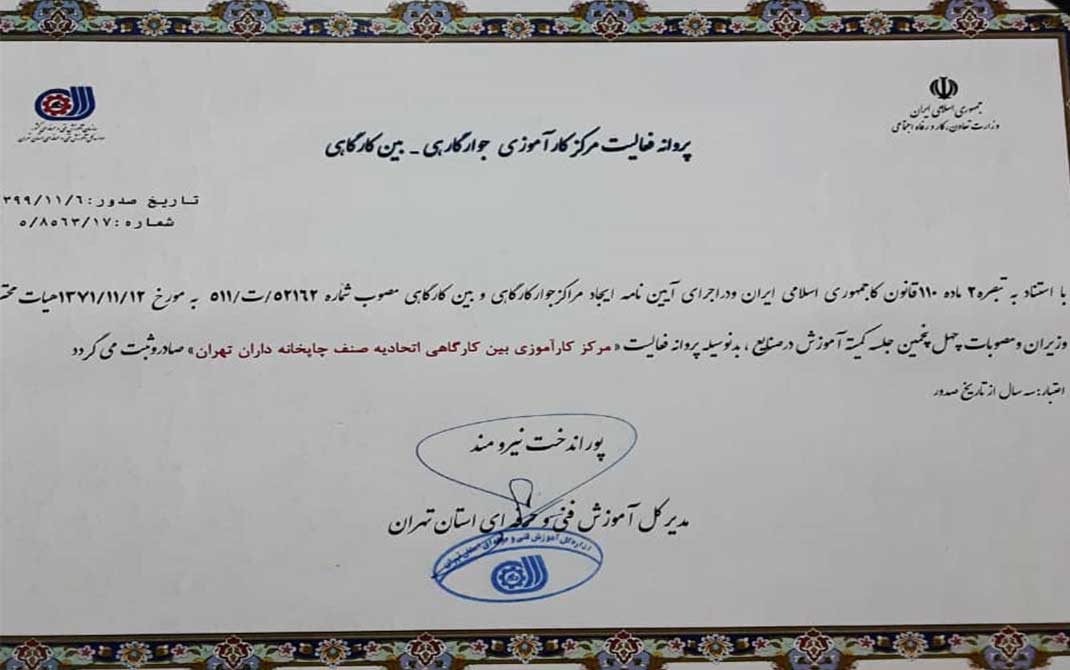 جمهوری اسلامی ایران
وزارت تعاون، کار و رفاه اجتماعی
پروانه فعالیت مرکز کارآموزی جوارکارهی - بین کارگاهی
تاریخ صدور: ۳۹۹/۱۱/۶
شماره: ۵/۸۵۶۳/۱۷
با استناد به تبصره ۲ ماده ۱۱۰ قانون کاجمهوری اسلامی ایران ودراجرای آیین نامه ایجاد مراکزجوارکارگاهی و بین کارگاهی مصوب شماره ۵۲۱۶۲/ت/۵۱۱ به مورخ ۱۳۷۱/۱۱/۱۲هیات
وزیران ومصوبات چهل پنجمین جلسه کمیته آموزش درصنایع ، بدنوسیله پروانه فعالیت «مرکز کارآموزی بین کارگاهی اتحادیه صنف چاپخانه داران تهران» صادروثبت می گردد
اعتبار: سه سال از تاریخ صدور
پوراندخت نیرومند
مدیرکل آموزش فنی و حرفه ای استان تهران
اداره کل آموزش فنی و حرفه ای استان تهران